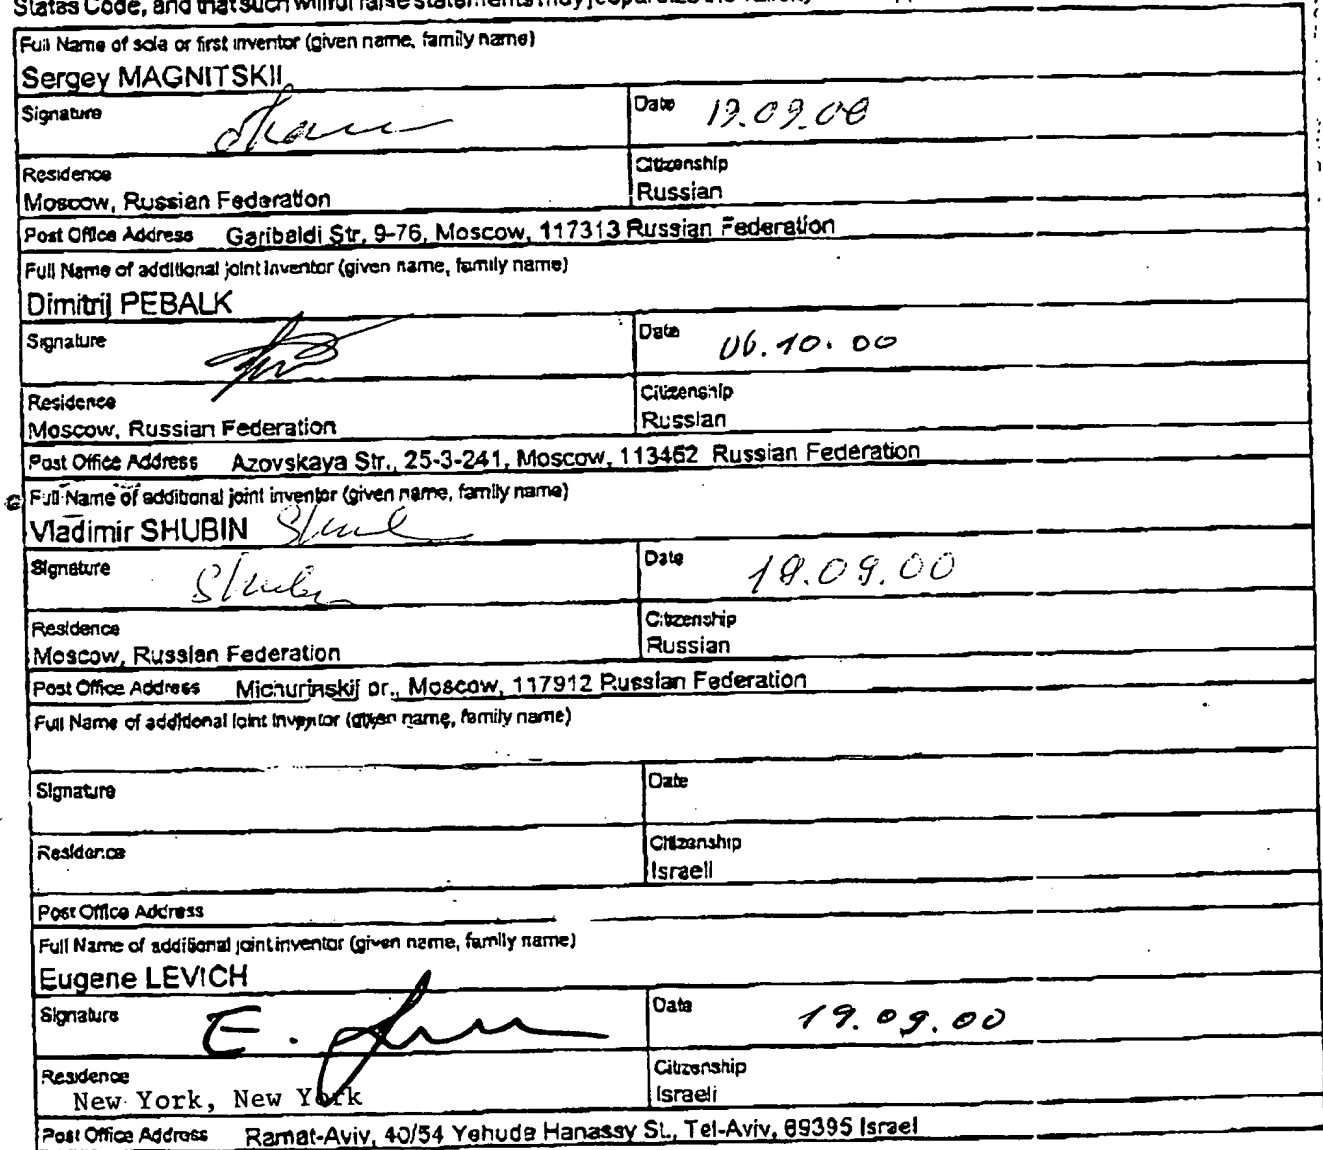 States Code, and that such willful false statements may jeopardize the validity
Full Name of sole or first inventor (given name, family name)
Sergey MAGNITSKII
Signature
Date 19.09.00
Residence
Moscow, Russian Federation
Citizenship
Russian
Post Office Address Garibaldi Str, 9-76, Moscow, 117313 Russian Federation
Full Name of additional joint inventor (given name, family name)
Dimitrij PEBALK
Signature
Date 06.10.00
Residence
Moscow, Russian Federation
Citizenship
Russian
Post Office Address Azovskaya Str., 25-3-241, Moscow, 113462 Russian Federation
Full Name of additional joint inventor (given name, family name)
Vladimir SHUBIN
Signature
Date 19.09.00
Residence
Moscow, Russian Federation
Citizenship
Russian
Post Office Address Michurinskij pr., Moscow, 117912 Russian Federation
Full Name of additional joint inventor (given name, family name)
Signature
Date
Residence
Citizenship
Israeli
Post Office Address
Full Name of additional joint inventor (given name, family name)
Eugene LEVICH
Signature E.
Date 19.09.00
Residence
New York, New York
Citizenship
Israeli
Post Office Address Ramat-Aviv, 40/54 Yehuda Hanassy St., Tel-Aviv, 69395 Israel